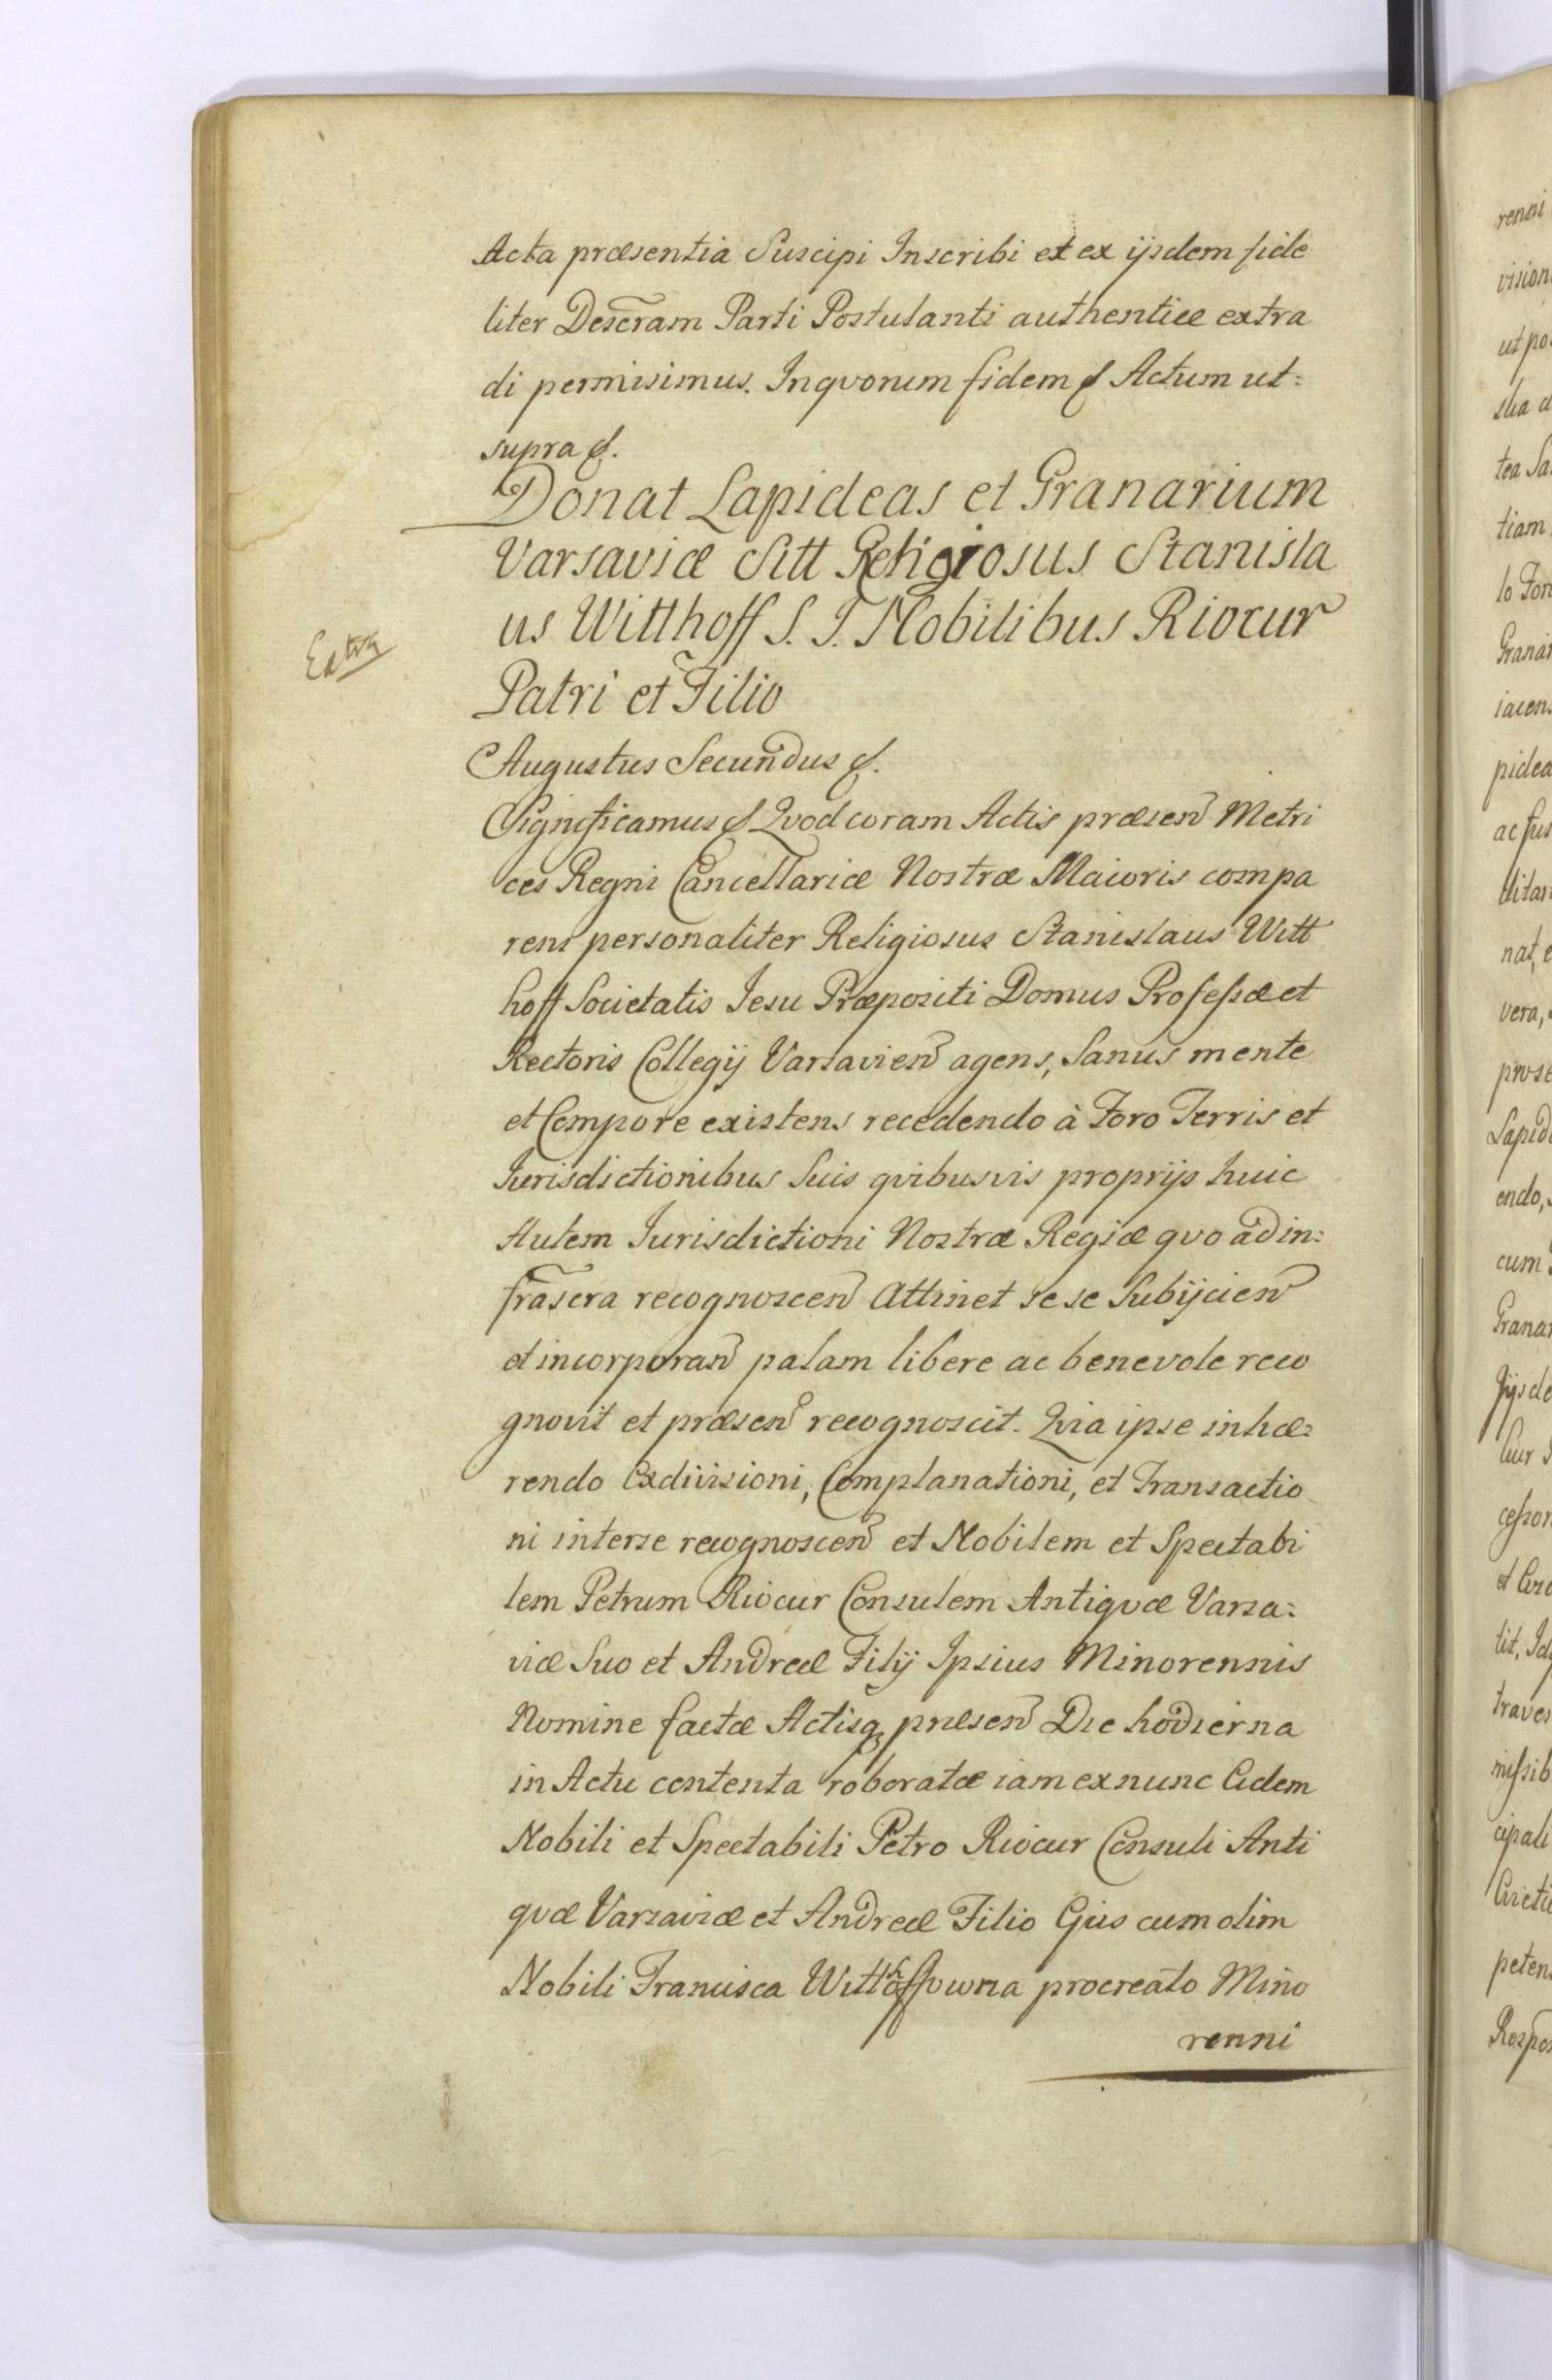 Acta præsentia Suscipi Inscribi et ex ijsdem fide
liter Descram Parti Postulanti authentice extra
di permisimus. Inqvorum fidem & Actum ut=
supra &.
Donat Lapideas et Granarium
Varsaviæ Sitt Religiosus Stanisla
us Witthoff S. J. Nobilibus Riocur
Patri et Filio
Extra
Augustus Secundus &.
Significamus & Qvod coram Actis præsen Metri
ces Regni Cancellariæ Nostræ Maioris compa
rens personaliter Religiosus Stanislaus Witt
hoff Societatis Iesu Præpositi Domus Professæ et
Rectoris Collegij Varsavien agens, Sanus mente
et Corpore existens recedendo à Foro Terris et
Iurisdictionibus Suis qvibusvis proprijs huic
Autem Iurisdictioni Nostræ Regiæ qvo ad in=
frascra recognoscen Attinet se se Subijcien
et incorporan palam libere ac benevole reco
gnovit et præsen recognoscit. Qvia ipse inhæ=
rendo Exdivisioni, Complanationi, et Transactio
ni interse recognoscen et Nobilem et Spectabi
lem Petrum Riocur Consulem Antiqvæ Varsa=
viæ Suo et Andreæ Filij Ipsius Minorennis
Nomine factæ Actisq præsen Die hodierna
in Actu contenta roboratæ iam exnunc Eidem
Nobili et Spectabili Petro Riocur Consuli Anti
qvæ Varsaviæ et Andreæ Filio Ejus cum olim
Nobili Francisca Witthoffowna procreato Mino
renni